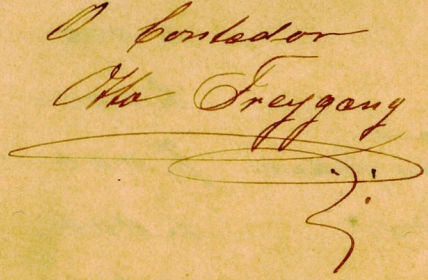 O Contador
Otto Freygang